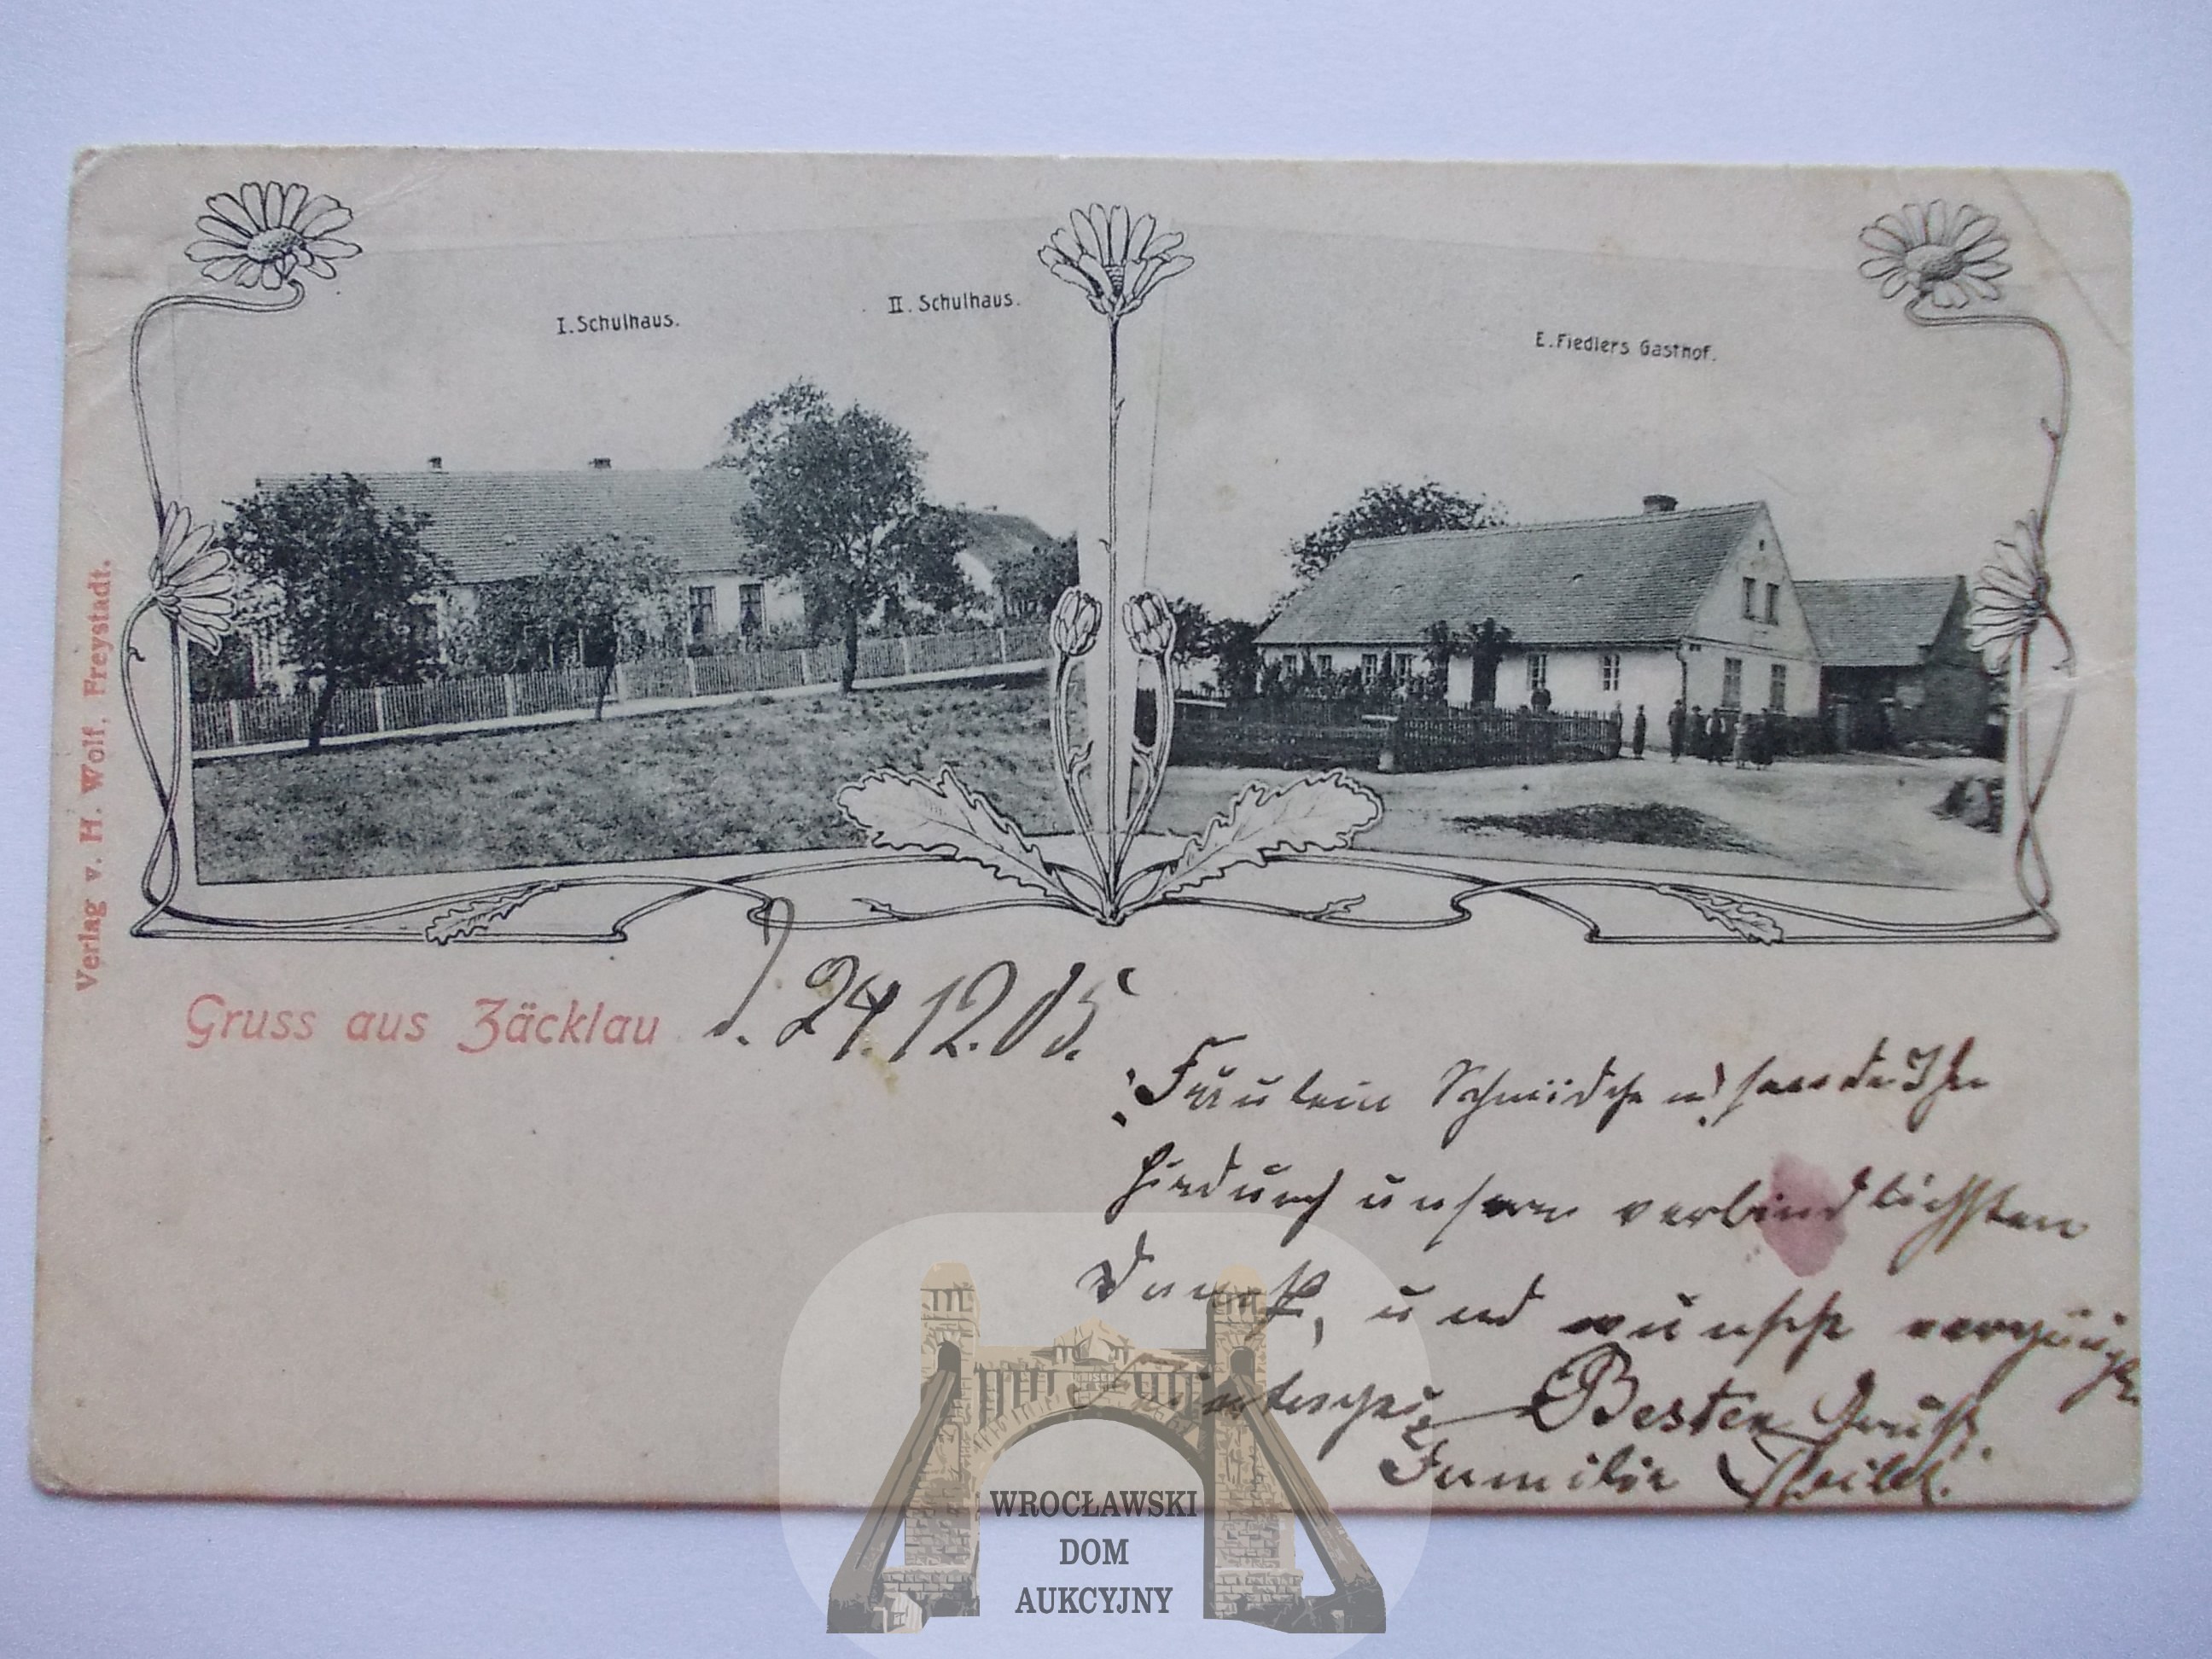 I. Schulhaus.
II. Schulhaus.
E. Fiedlers Gasthof.
Verlag v. H. Wolf, Freystadt.
Gruss aus Zäcklau
d. 24.12.05.
Fräulein Schmidchen! sende Ihn
hierdurch unsern verbindlichsten
Dank, und wünsche vergnügte
Feiertage. Besten Gruß.
Familie
WROCŁAWSKI
DOM
AUKCYJNY